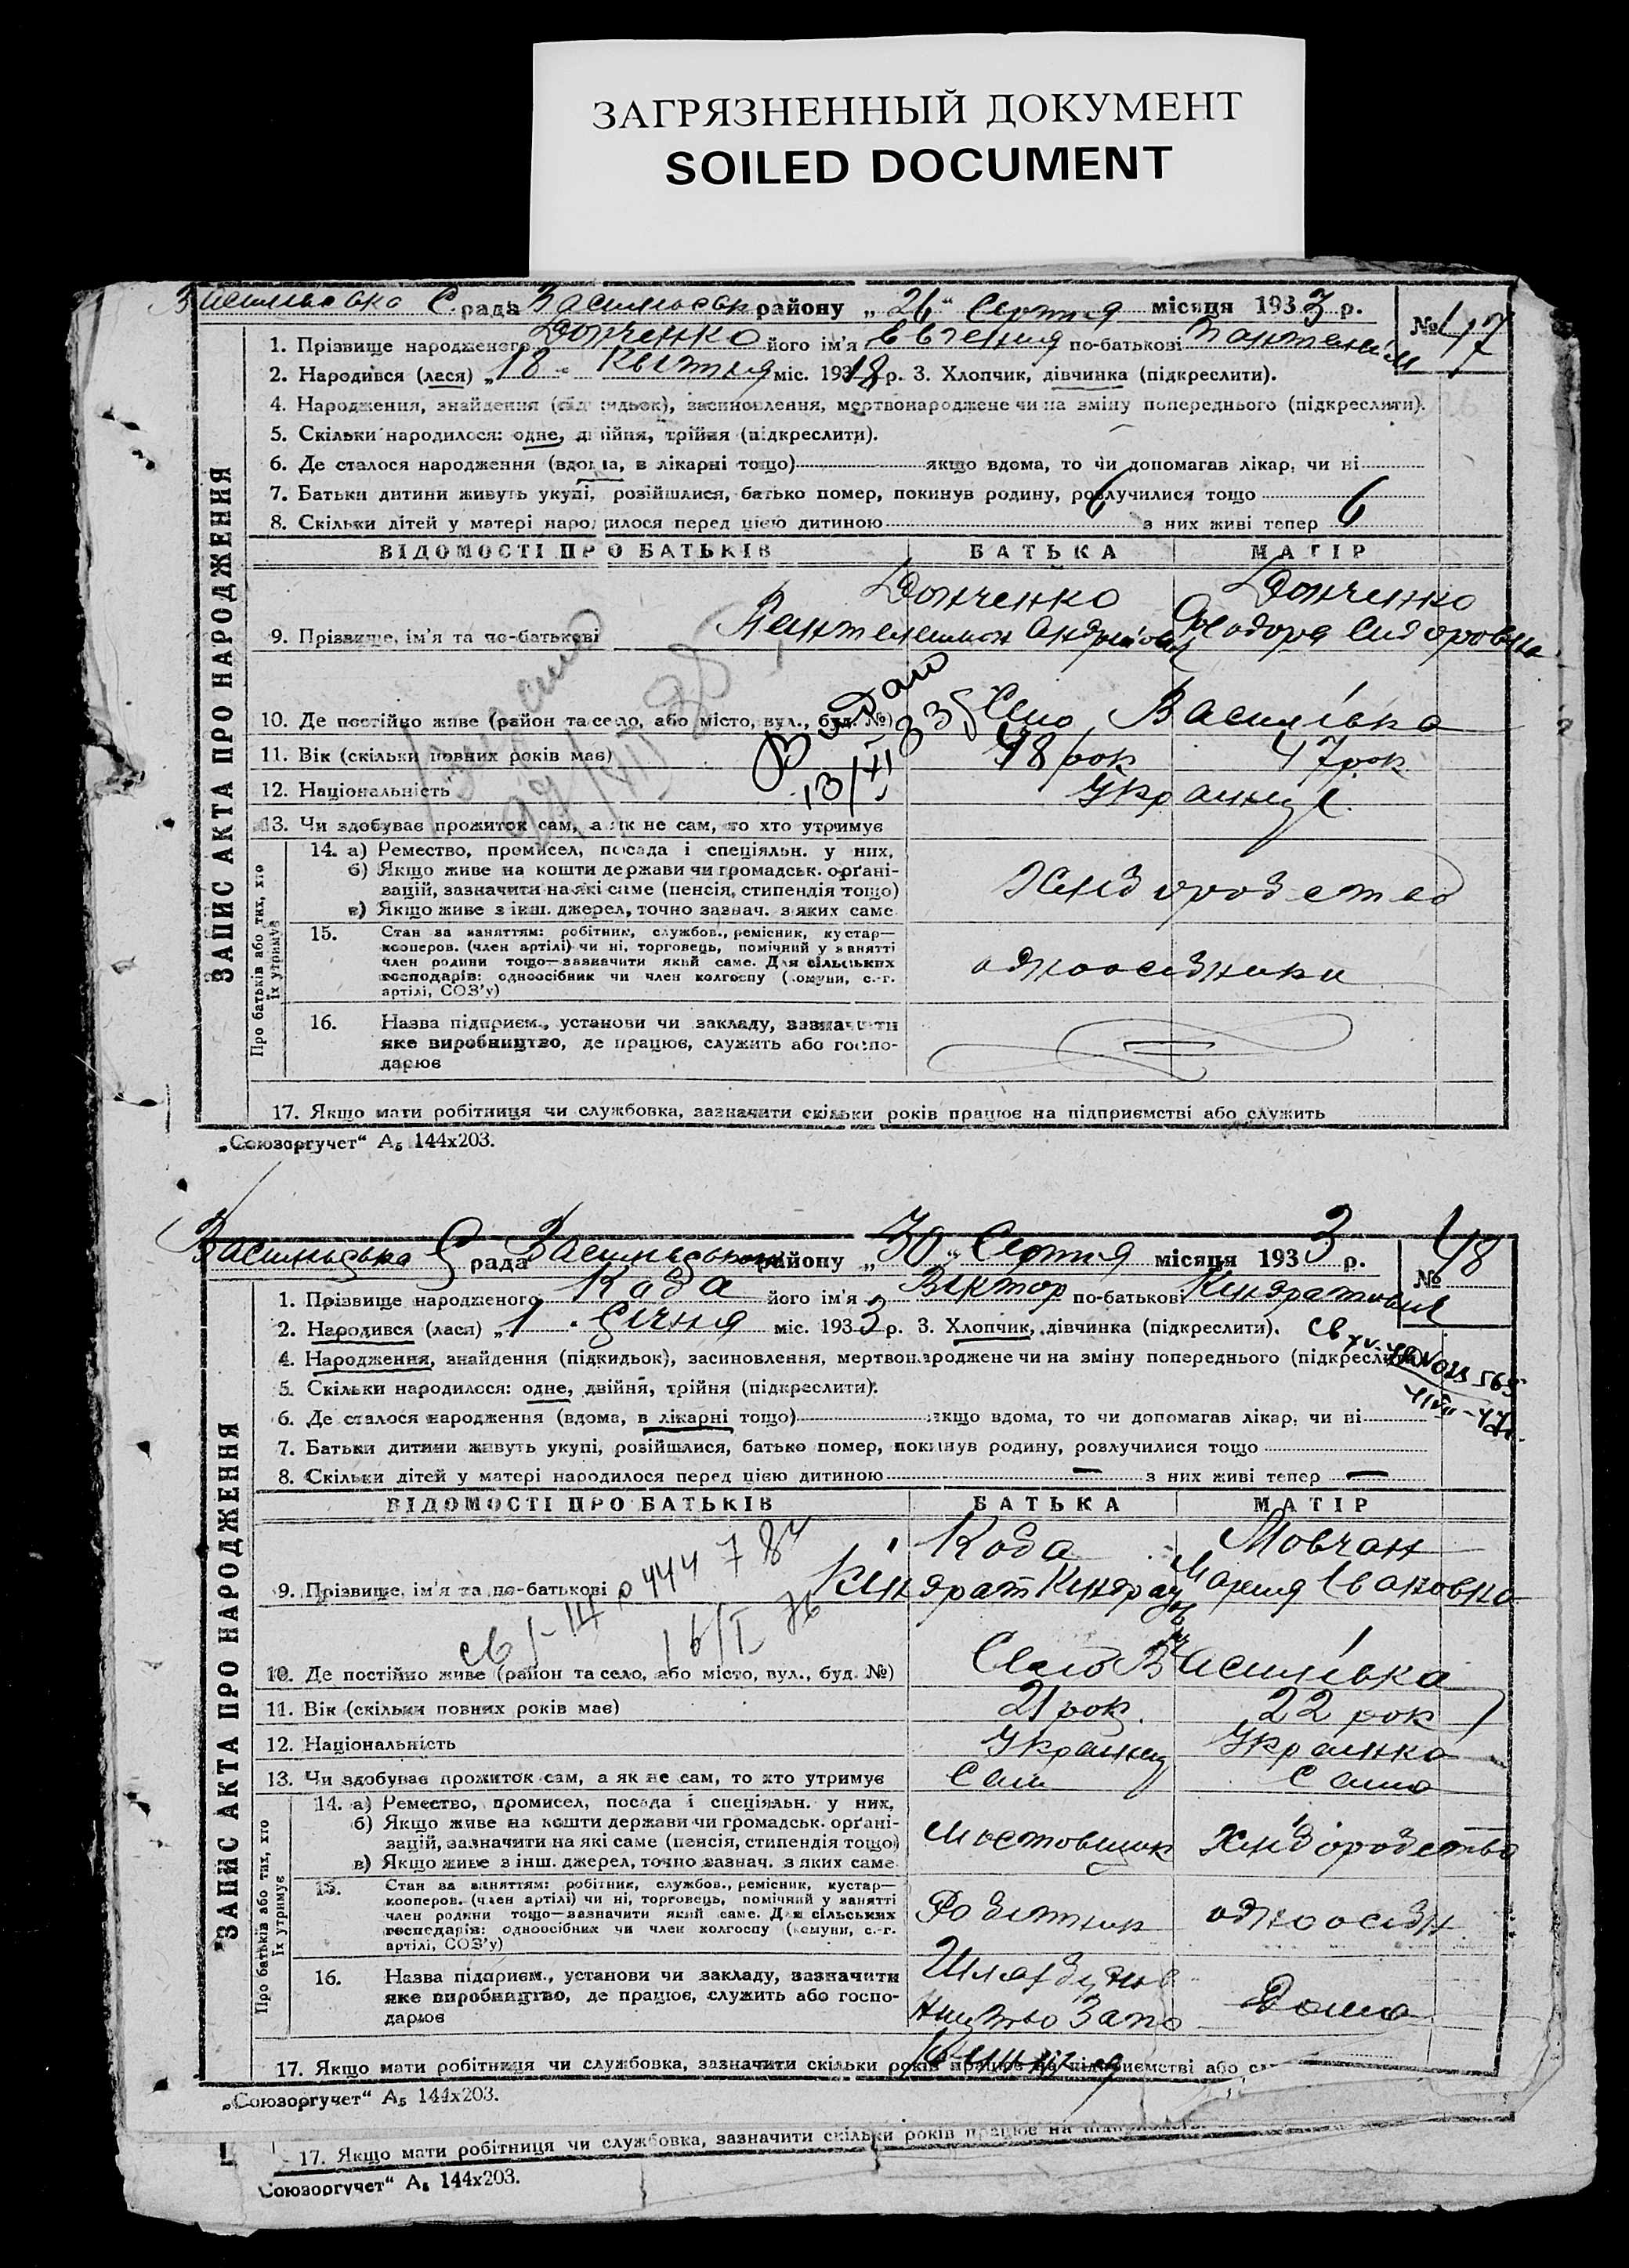 ЗАГРЯЗНЕННЫЙ ДОКУМЕНТ
SOILED DOCUMENT
С. рада району „26“ Серпня місяця 1933 р. № 47
1. Прізвище народженого Донченко його ім'я Евгения по-батькові
2. Народився (лася) „18“ Квітня міс. 1918 р. 3. Хлопчик, дівчинка (підкреслити).
4. Народження, знайдення (підкидьок), засиновлення, мертвонароджене чи на зміну попереднього (підкреслити).
5. Скільки народилося: одне, двійня, трійня (підкреслити).
6. Де сталося народження (вдома, в лікарні тощо) якщо вдома, то чи допомагав лікар, чи ні
7. Батьки дитини живуть укупі, розійшлися, батько помер, покинув родину, розлучилися тощо
8. Скільки дітей у матері народилося перед цією дитиною 6 з них живі тепер 6
ВІДОМОСТІ ПРО БАТЬКІВ БАТЬКА МАТІР
Донченко Донченко
9. Прізвище, ім'я та по-батькові Сидоровна
Видано
13/VI 335
10. Де постійно живе (район та село, або місто, вул., буд. №) Село Василівка
11. Вік (скільки повних років має) 48 рок 47 рок
12. Національність Украинці
13. Чи здобуває прожиток сам, а як не сам, то хто утримує
14. а) Ремество, промисел, посада і спеціяльн. у них.
б) Якщо живе на кошти держави чи громадськ. органі-
зацій, зазначити на які саме (пенсія, стипендія тощо)
в) Якщо живе з інш. джерел, точно зазнач. з яких саме
Хлібородство
15. Стан за заняттям: робітник, службов., ремісник, кустар—
кооперов. (член артілі) чи ні, торговець, помічний у занятті
член родини тощо—зазначити який саме. Для сільських
господарів: одноосібник чи член колгоспу (комуни, с.-г.
артілі, СОЗ'у)
одноосібники
16. Назва підприєм., установи чи закладу, зазначити
яке виробництво, де працює, служить або госпо-
дарює
17. Якщо мати робітниця чи службовка, зазначити скільки років працює на підприємстві або служить
ЗАПИС АКТА ПРО НАРОДЖЕННЯ
Про батьків або тих, хто
їх утримує
„Союзоргучет“ А₅ 144х203.
С рада району „30“ Серпня місяця 1933 р. № 48
1. Прізвище народженого Кода його ім'я Віктор по-батькові Кіндратович
2. Народився (лася) „1“ Січня міс. 1933 р. 3. Хлопчик, дівчинка (підкреслити).
4. Народження, знайдення (підкидьок), засиновлення, мертвонароджене чи на зміну попереднього (підкреслити).
5. Скільки народилося: одне, двійня, трійня (підкреслити).
6. Де сталося народження (вдома, в лікарні тощо) якщо вдома, то чи допомагав лікар, чи ні
7. Батьки дитини живуть укупі, розійшлися, батько помер, покинув родину, розлучилися тощо
8. Скільки дітей у матері народилося перед цією дитиною — з них живі тепер —
ВІДОМОСТІ ПРО БАТЬКІВ БАТЬКА МАТІР
Кода Мовчан
9. Прізвище, ім'я та по-батькові Кіндрат Мария Івановна
16/I 76
10. Де постійно живе (район та село, або місто, вул., буд. №) Село Василівка
11. Вік (скільки повних років має) 21 рок. 22 рок
12. Національність Украинец Украинка
13. Чи здобуває прожиток сам, а як не сам, то хто утримує Сам Сама
14. а) Ремество, промисел, посада і спеціяльн. у них.
б) Якщо живе на кошти держави чи громадськ. органі-
зацій, зазначити на які саме (пенсія, стипендія тощо)
в) Якщо живе з інш. джерел, точно зазнач. з яких саме
мостовщик Хлібородство
15. Стан за заняттям: робітник, службов., ремісник, кустар—
кооперов. (член артілі) чи ні, торговець, помічний у занятті
член родини тощо—зазначити який саме. Для сільських
господарів: одноосібник чи член колгоспу (комуни, с.-г.
артілі, СОЗ'у)
Робітник одноосібн
16. Назва підприєм., установи чи закладу, зазначити
яке виробництво, де працює, служить або госпо-
дарює
Дома
17. Якщо мати робітниця чи службовка, зазначити скільки років працює на підприємстві або
ЗАПИС АКТА ПРО НАРОДЖЕННЯ
Про батьків або тих, хто
їх утримує
„Союзоргучет“ А₅ 144х203.
17. Якщо мати робітниця чи службовка, зазначити скільки років працює на
Союзоргучет“ А₅ 144х203.